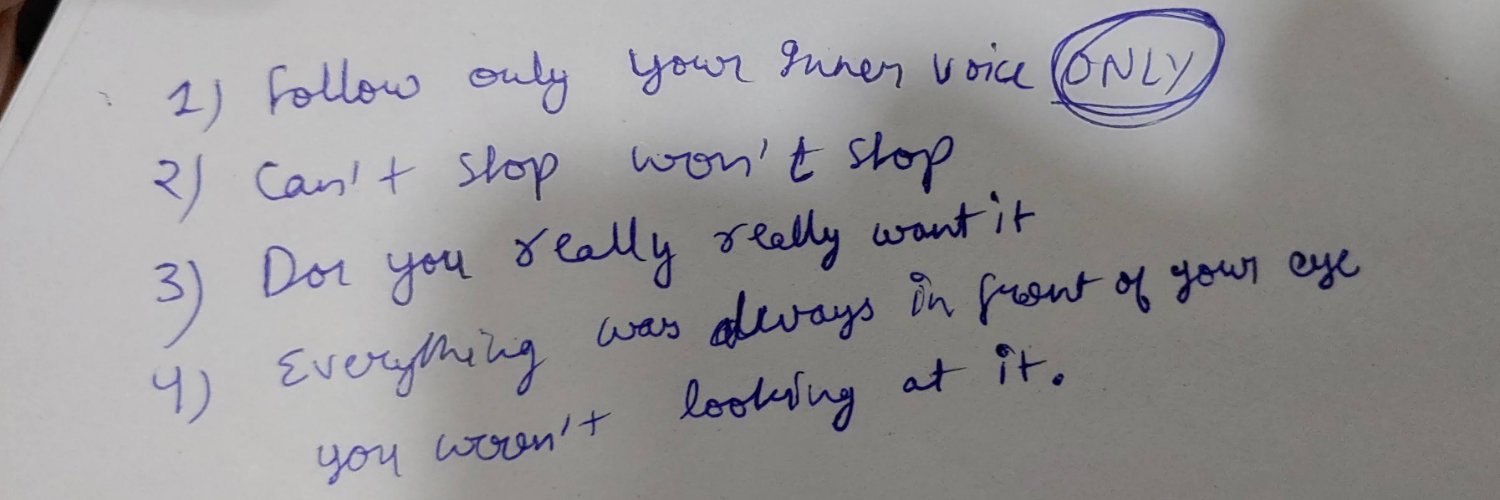 1) Follow only your Inner voice ONLY
2) Can't stop won't stop
3) Do you really really want it
4) Everything was always in front of your eye
you weren't looking at it.